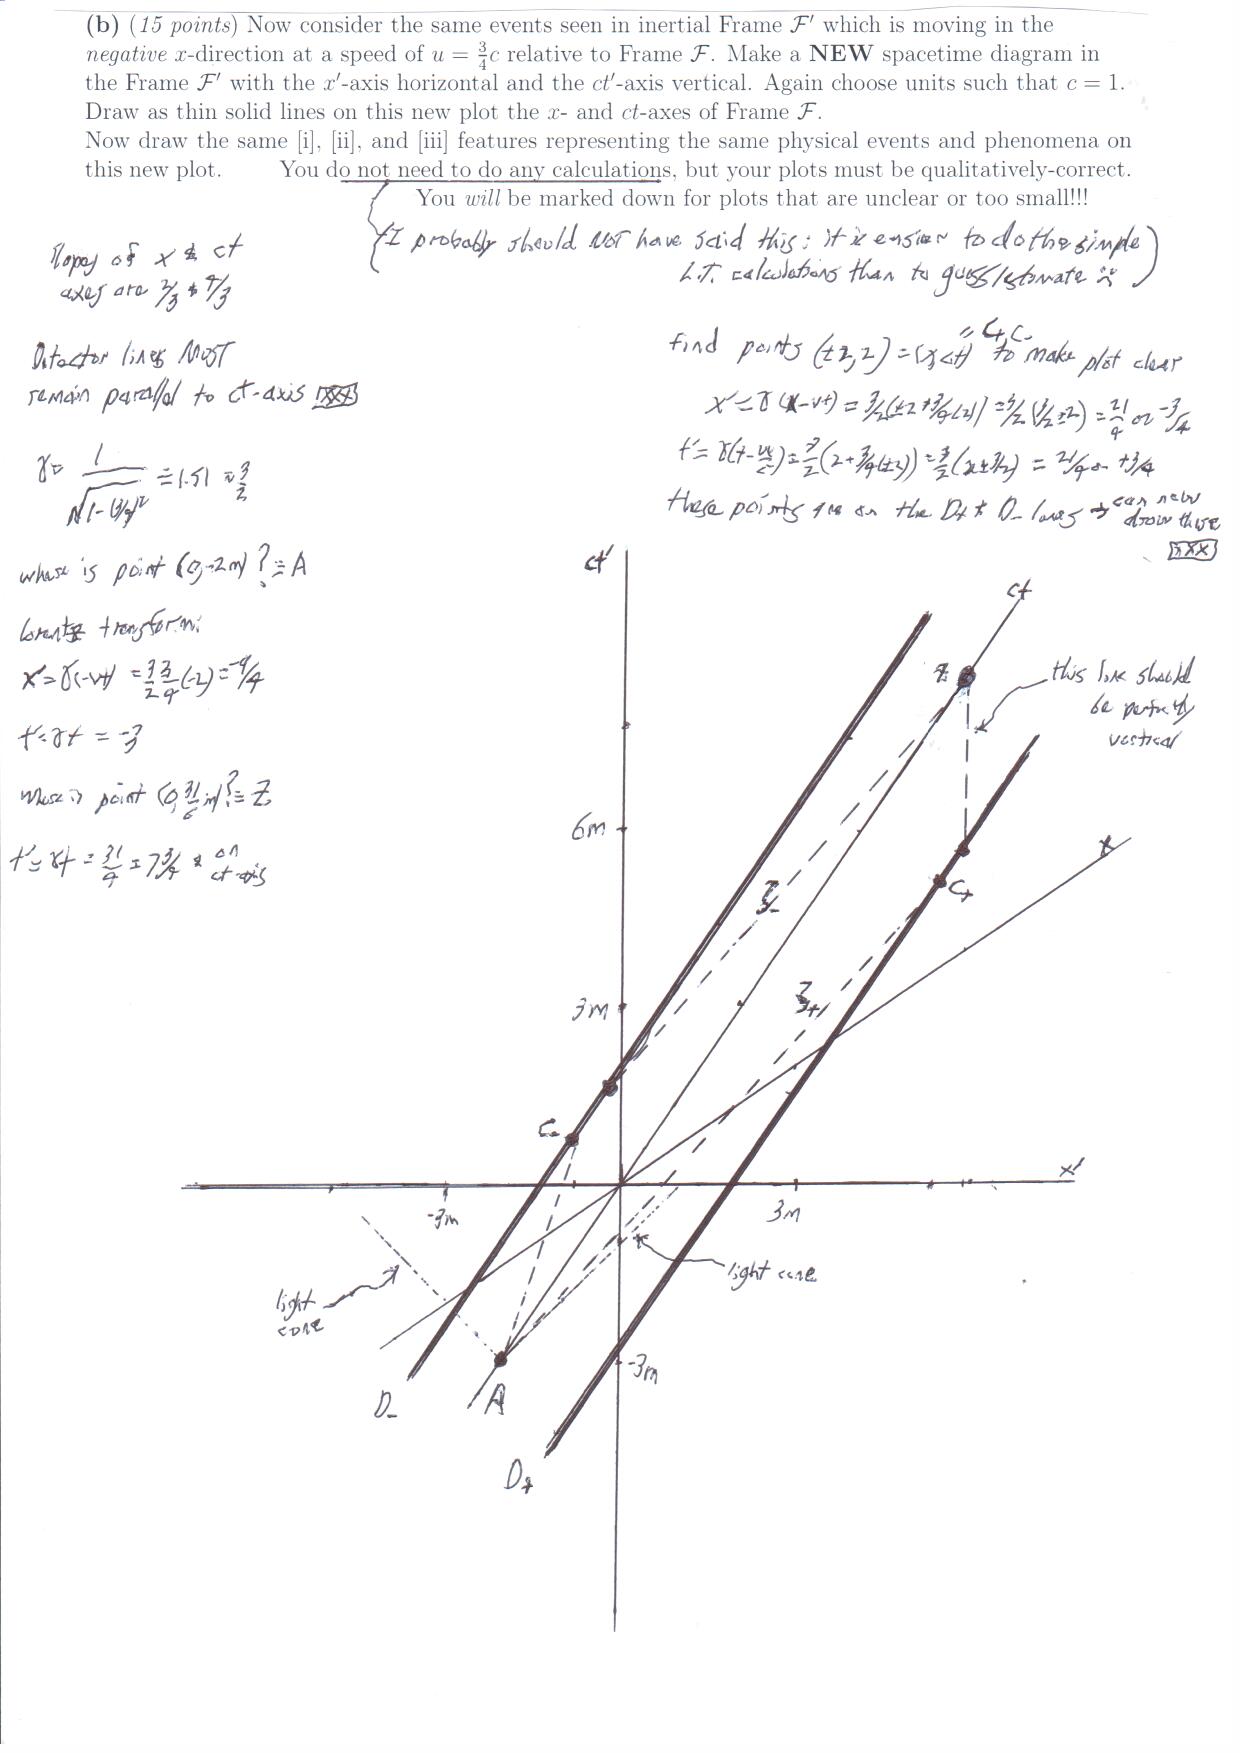 (b) (15 points) Now consider the same events seen in inertial Frame F′ which is moving in the
negative x-direction at a speed of u = 3/4 c relative to Frame F. Make a NEW spacetime diagram in
the Frame F′ with the x′-axis horizontal and the ct′-axis vertical. Again choose units such that c = 1.
Draw as thin solid lines on this new plot the x- and ct-axes of Frame F.
Now draw the same [i], [ii], and [iii] features representing the same physical events and phenomena on
this new plot. You do not need to do any calculations, but your plots must be qualitatively-correct.
You will be marked down for plots that are unclear or too small!!!
(I probably should NOT have said this: it is easier to do the simple
L.T. calculations than to guess/estimate)
Slopes of x & ct
axes are
Detector lines MUST
remain parallel to ct-axis
γ = 1/√(1-(3/4)² = 1.51 ≈ 3/2
where is point (0,-2m)? = A
Lorentz transform:
x' = γ(-vt) = 3/2 3/4 (-2) = -9/4
t' = γt = -3
where is point (0, 31/6 m)? = Z
t' = γt = 31/4 = 7 3/4 & on
ct-axis
= C+,C-
find points (±2,2) = (x,ct) to make plot clear
x' = γ(x-vt) = 3/2(±2+3/4(2)) = 3/2(3/2±2) = 21/4 or -3/4
= 21/4 or +3/4
these points are on the D+ & D- lines → can now
draw these
ct'
ct
Z
this line should
be perfectly
vertical
6m
x
C+
3m
C-
x'
-3m
3m
light cone
light
cone
-3m
D-
A
D+